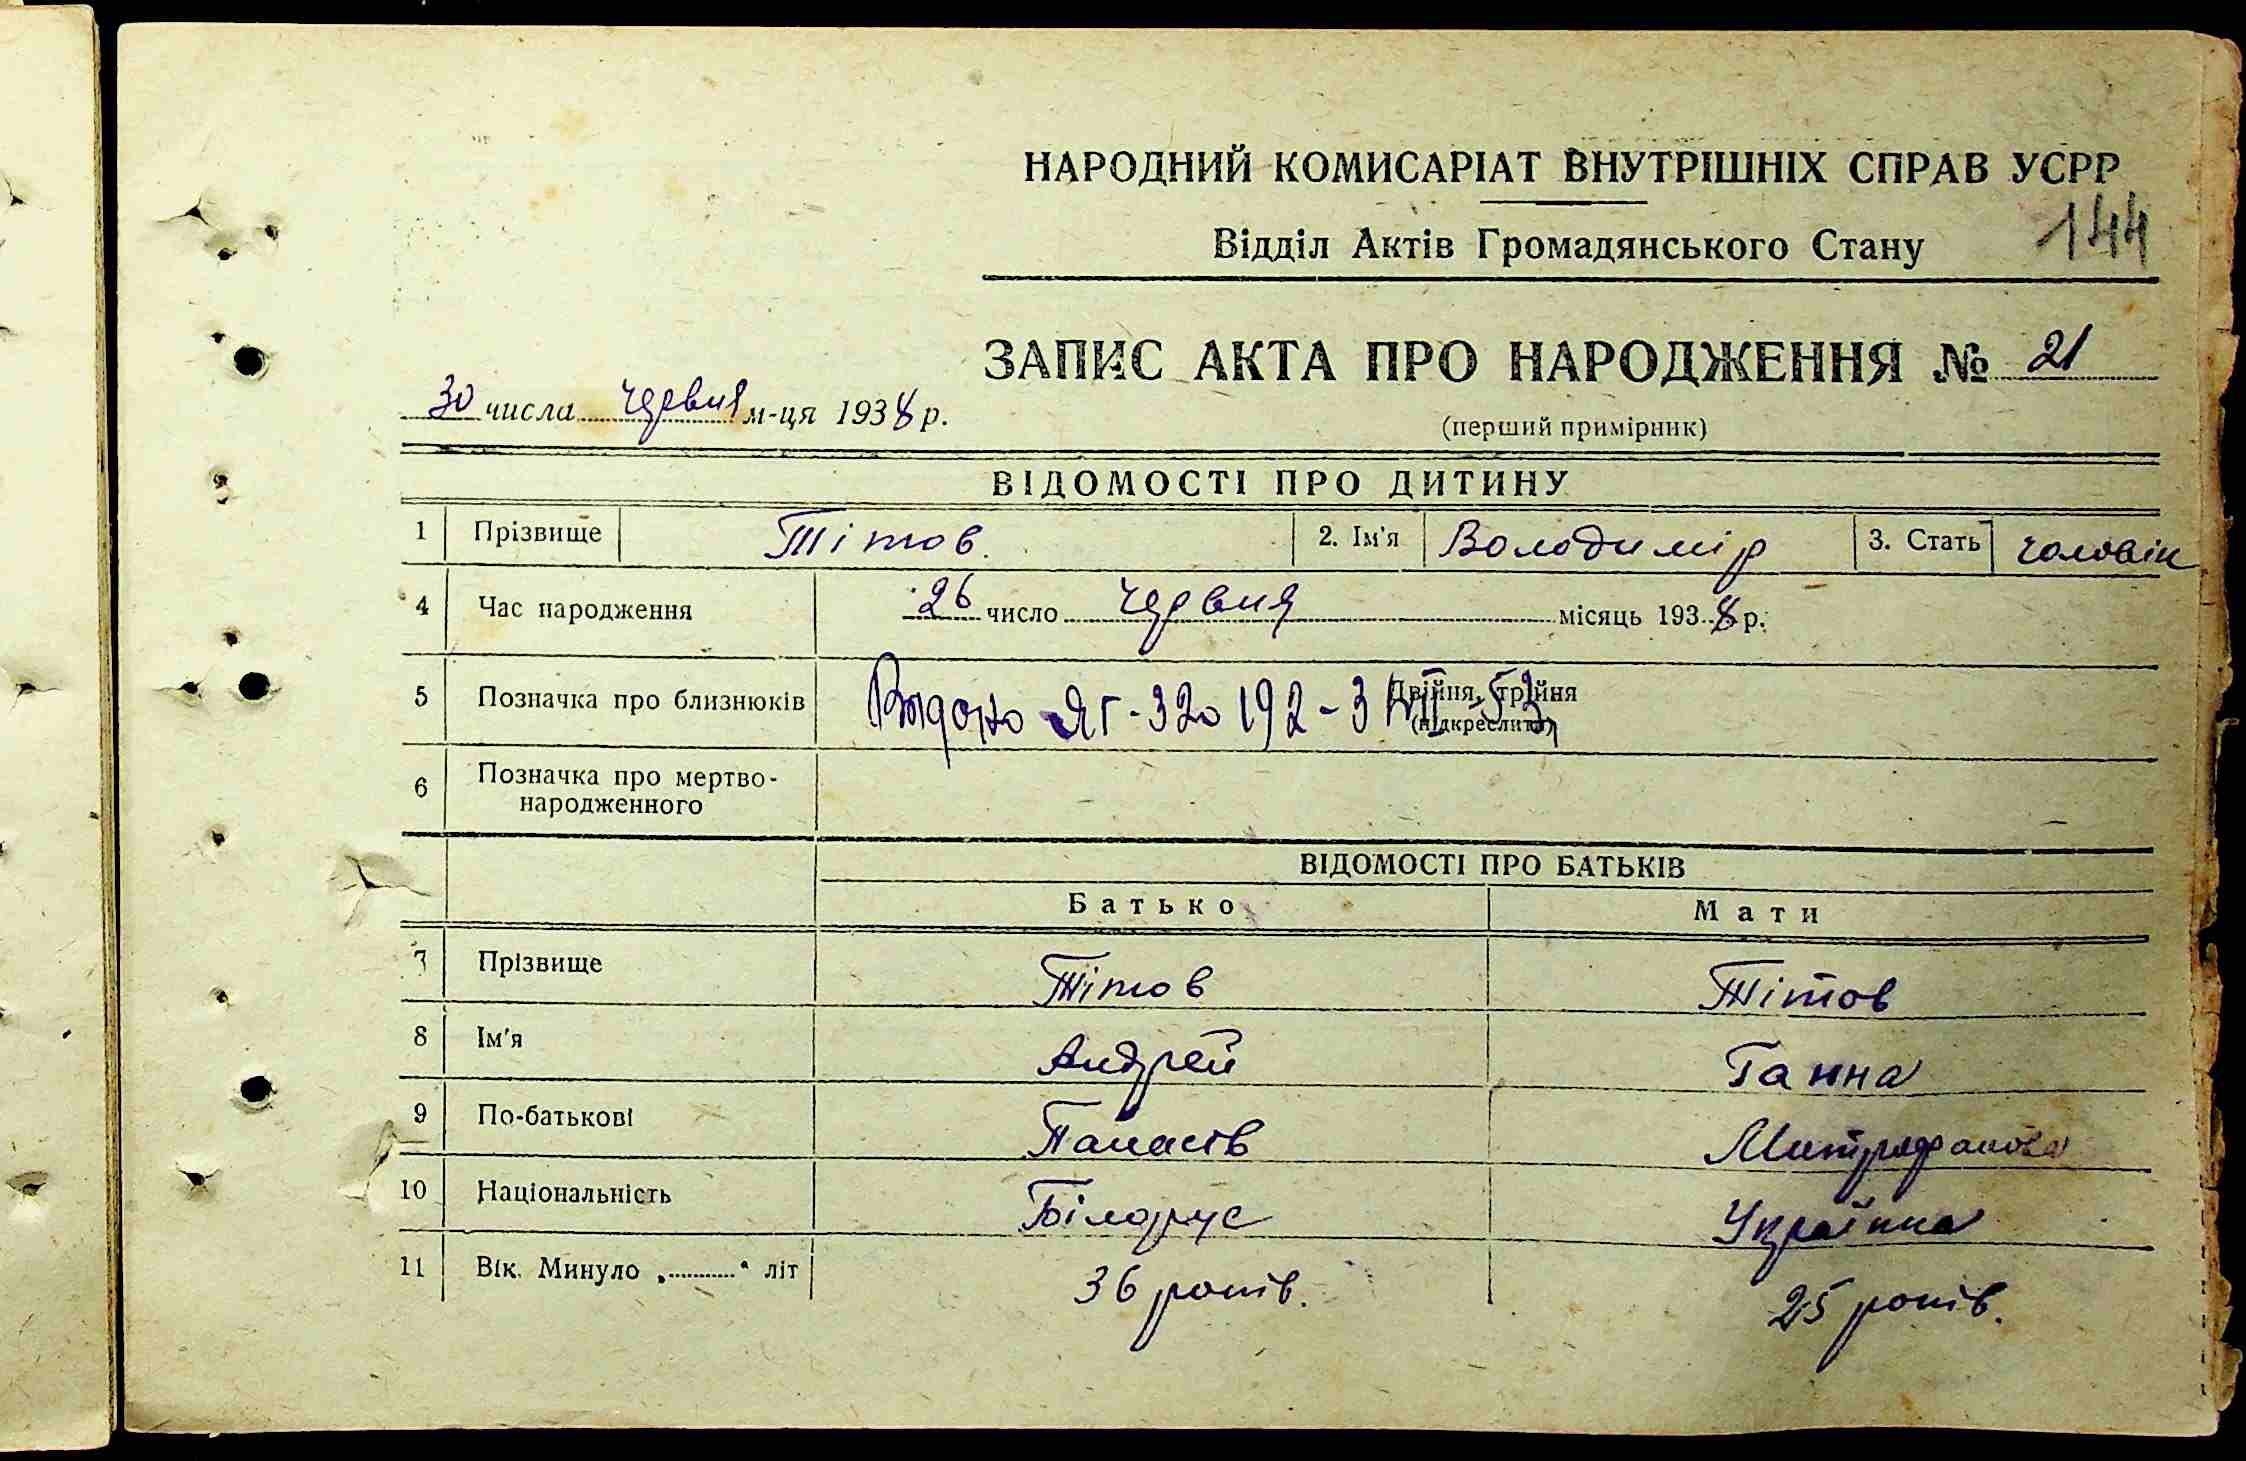 НАРОДНИЙ КОМИСАРІАТ ВНУТРІШНІХ СПРАВ УСРР
144
Відділ Актів Громадянського Стану
ЗАПИС АКТА ПРО НАРОДЖЕННЯ № 21
30 числа червня м-ця 1938 р.
(перший примірник)
ВІДОМОСТІ ПРО ДИТИНУ
1 Прізвище Тітов. 2. Ім'я Володимір 3. Стать чоловік
4 Час народження 26 число червня місяць 1938 р.
5 Позначка про близнюків Двійня, трійня
(підкреслити)
Видано ЯГ-320192-3 VII 53
6 Позначка про мертво-
народженного
ВІДОМОСТІ ПРО БАТЬКІВ
Батько Мати
7 Прізвище Тітов Тітов
8 Ім'я Андрей Ганна
9 По-батькові Панасів Митрофанова
10 Національність Білорус Українка
11 Вік. Минуло „ “ літ 36 років. 25 років.